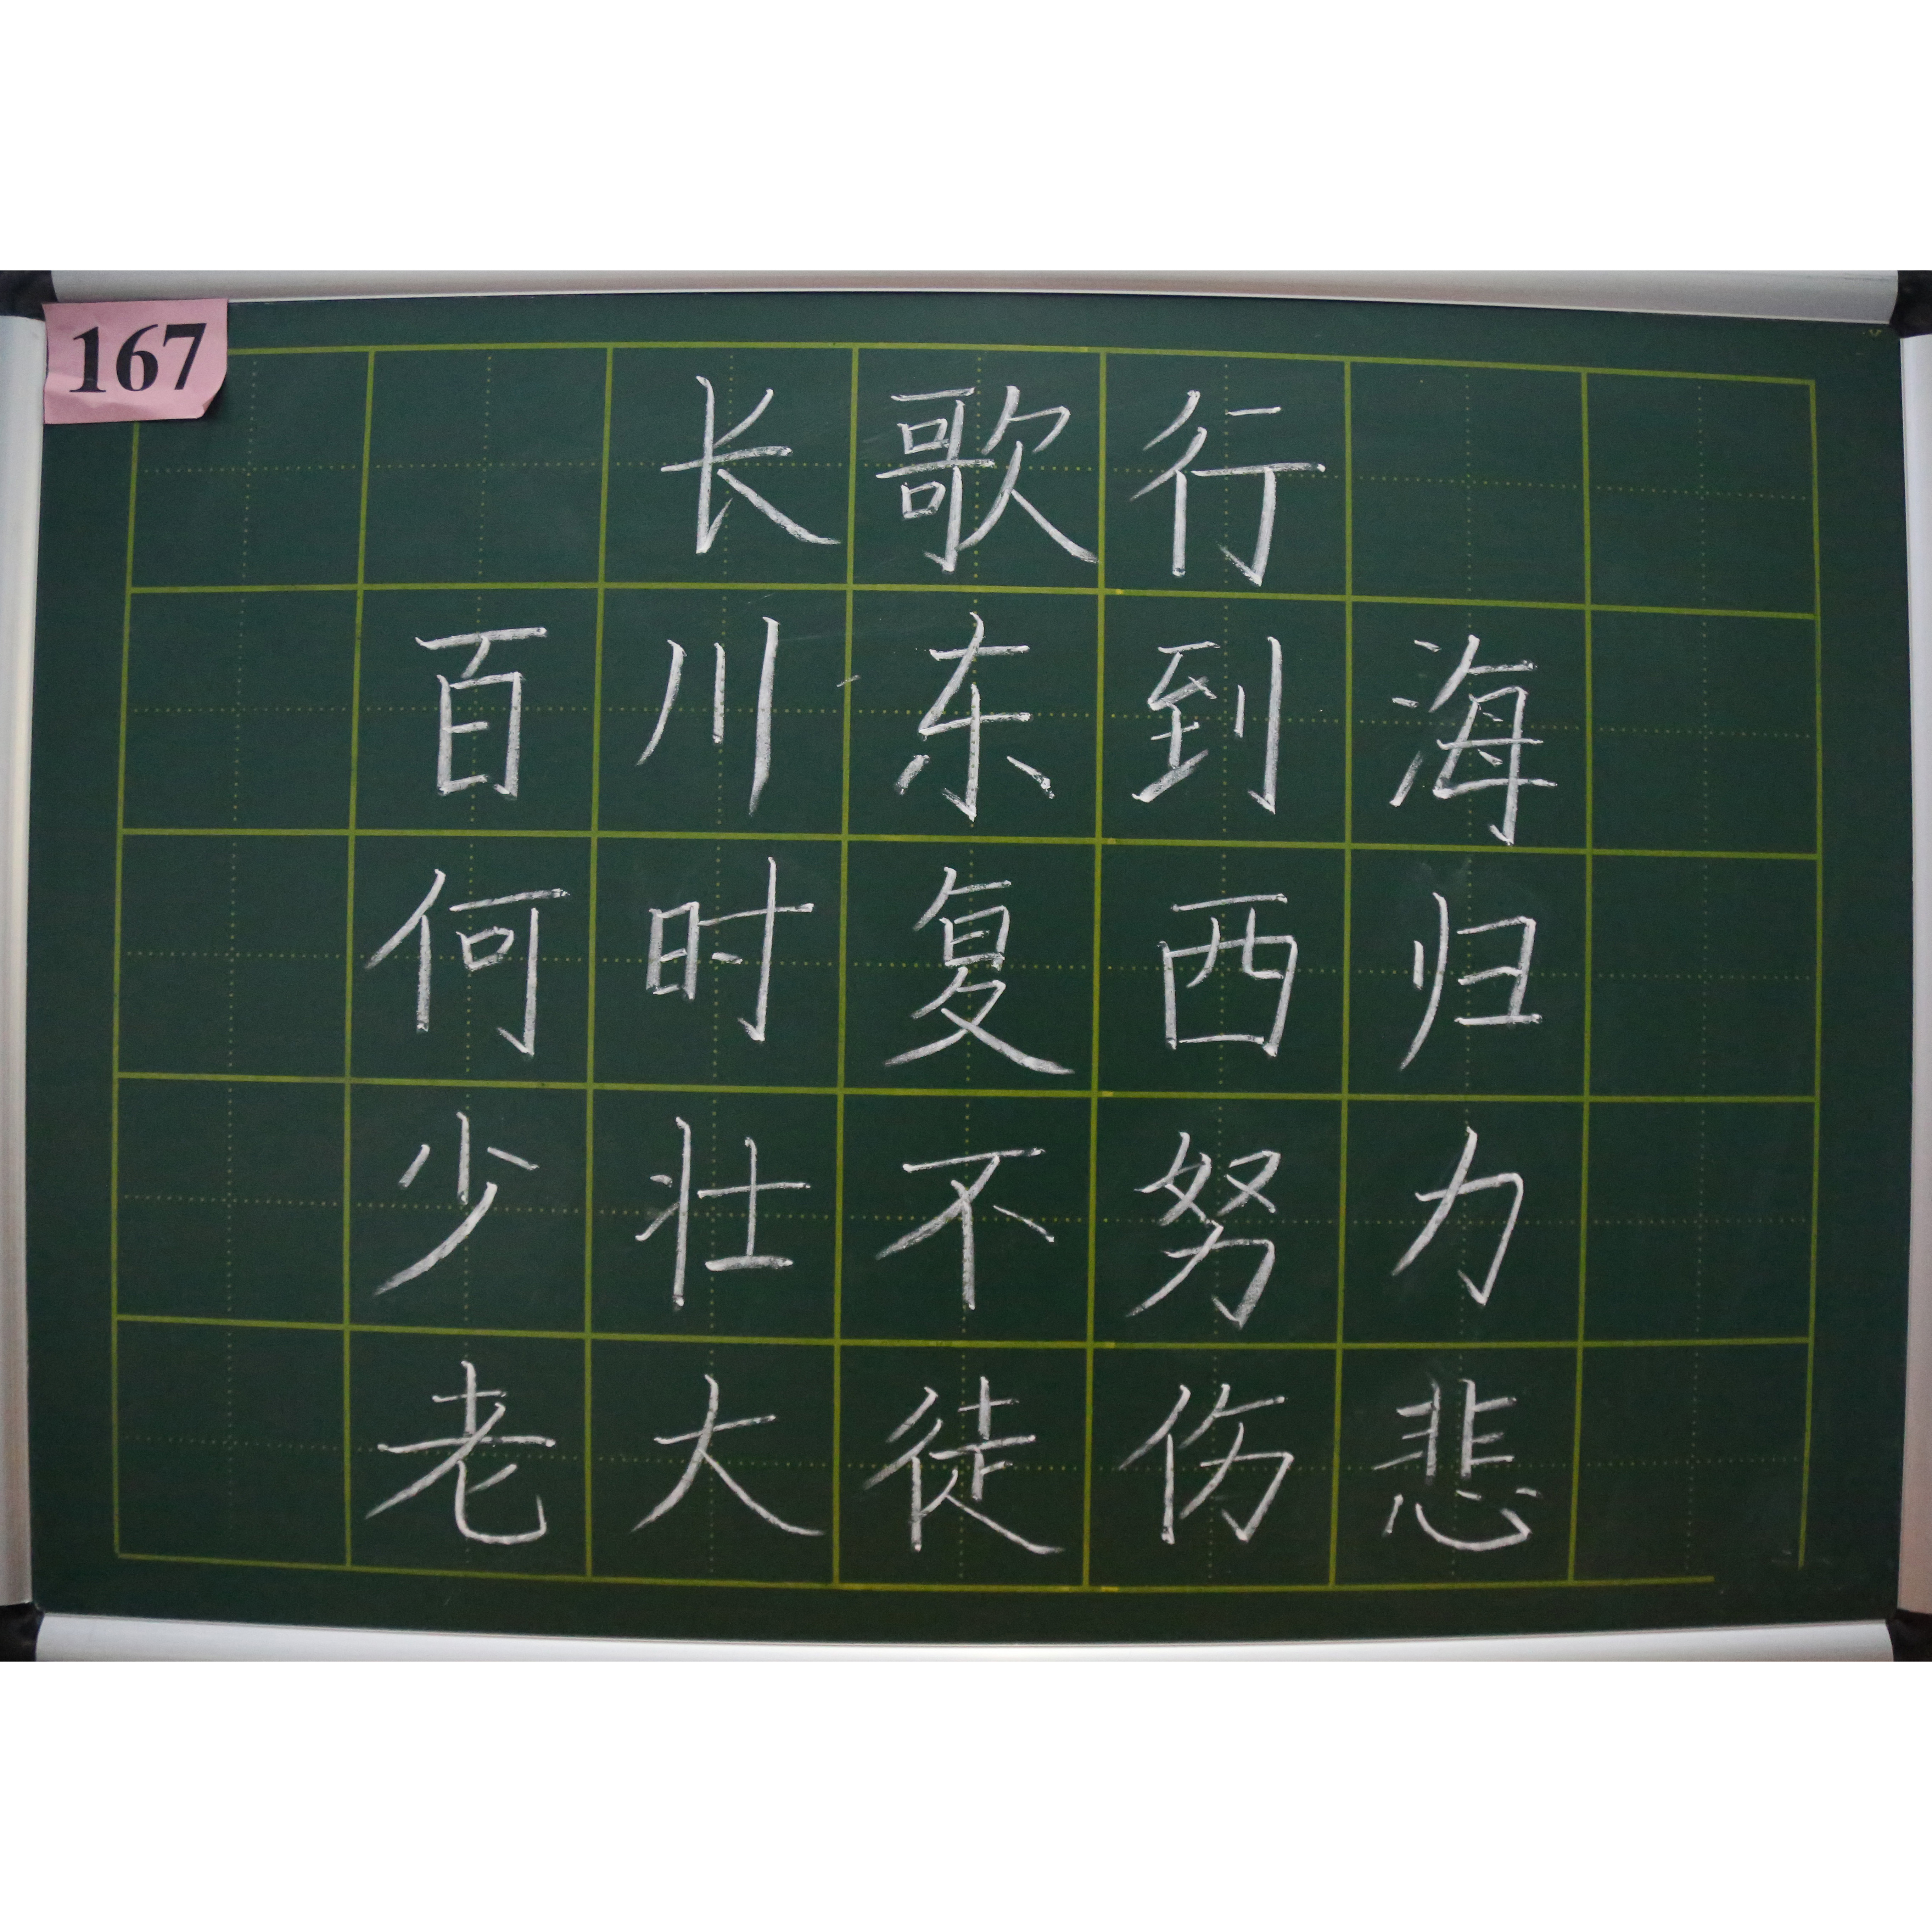 167
长歌行
百川东到海
何时复西归
少壮不努力
老大徒伤悲